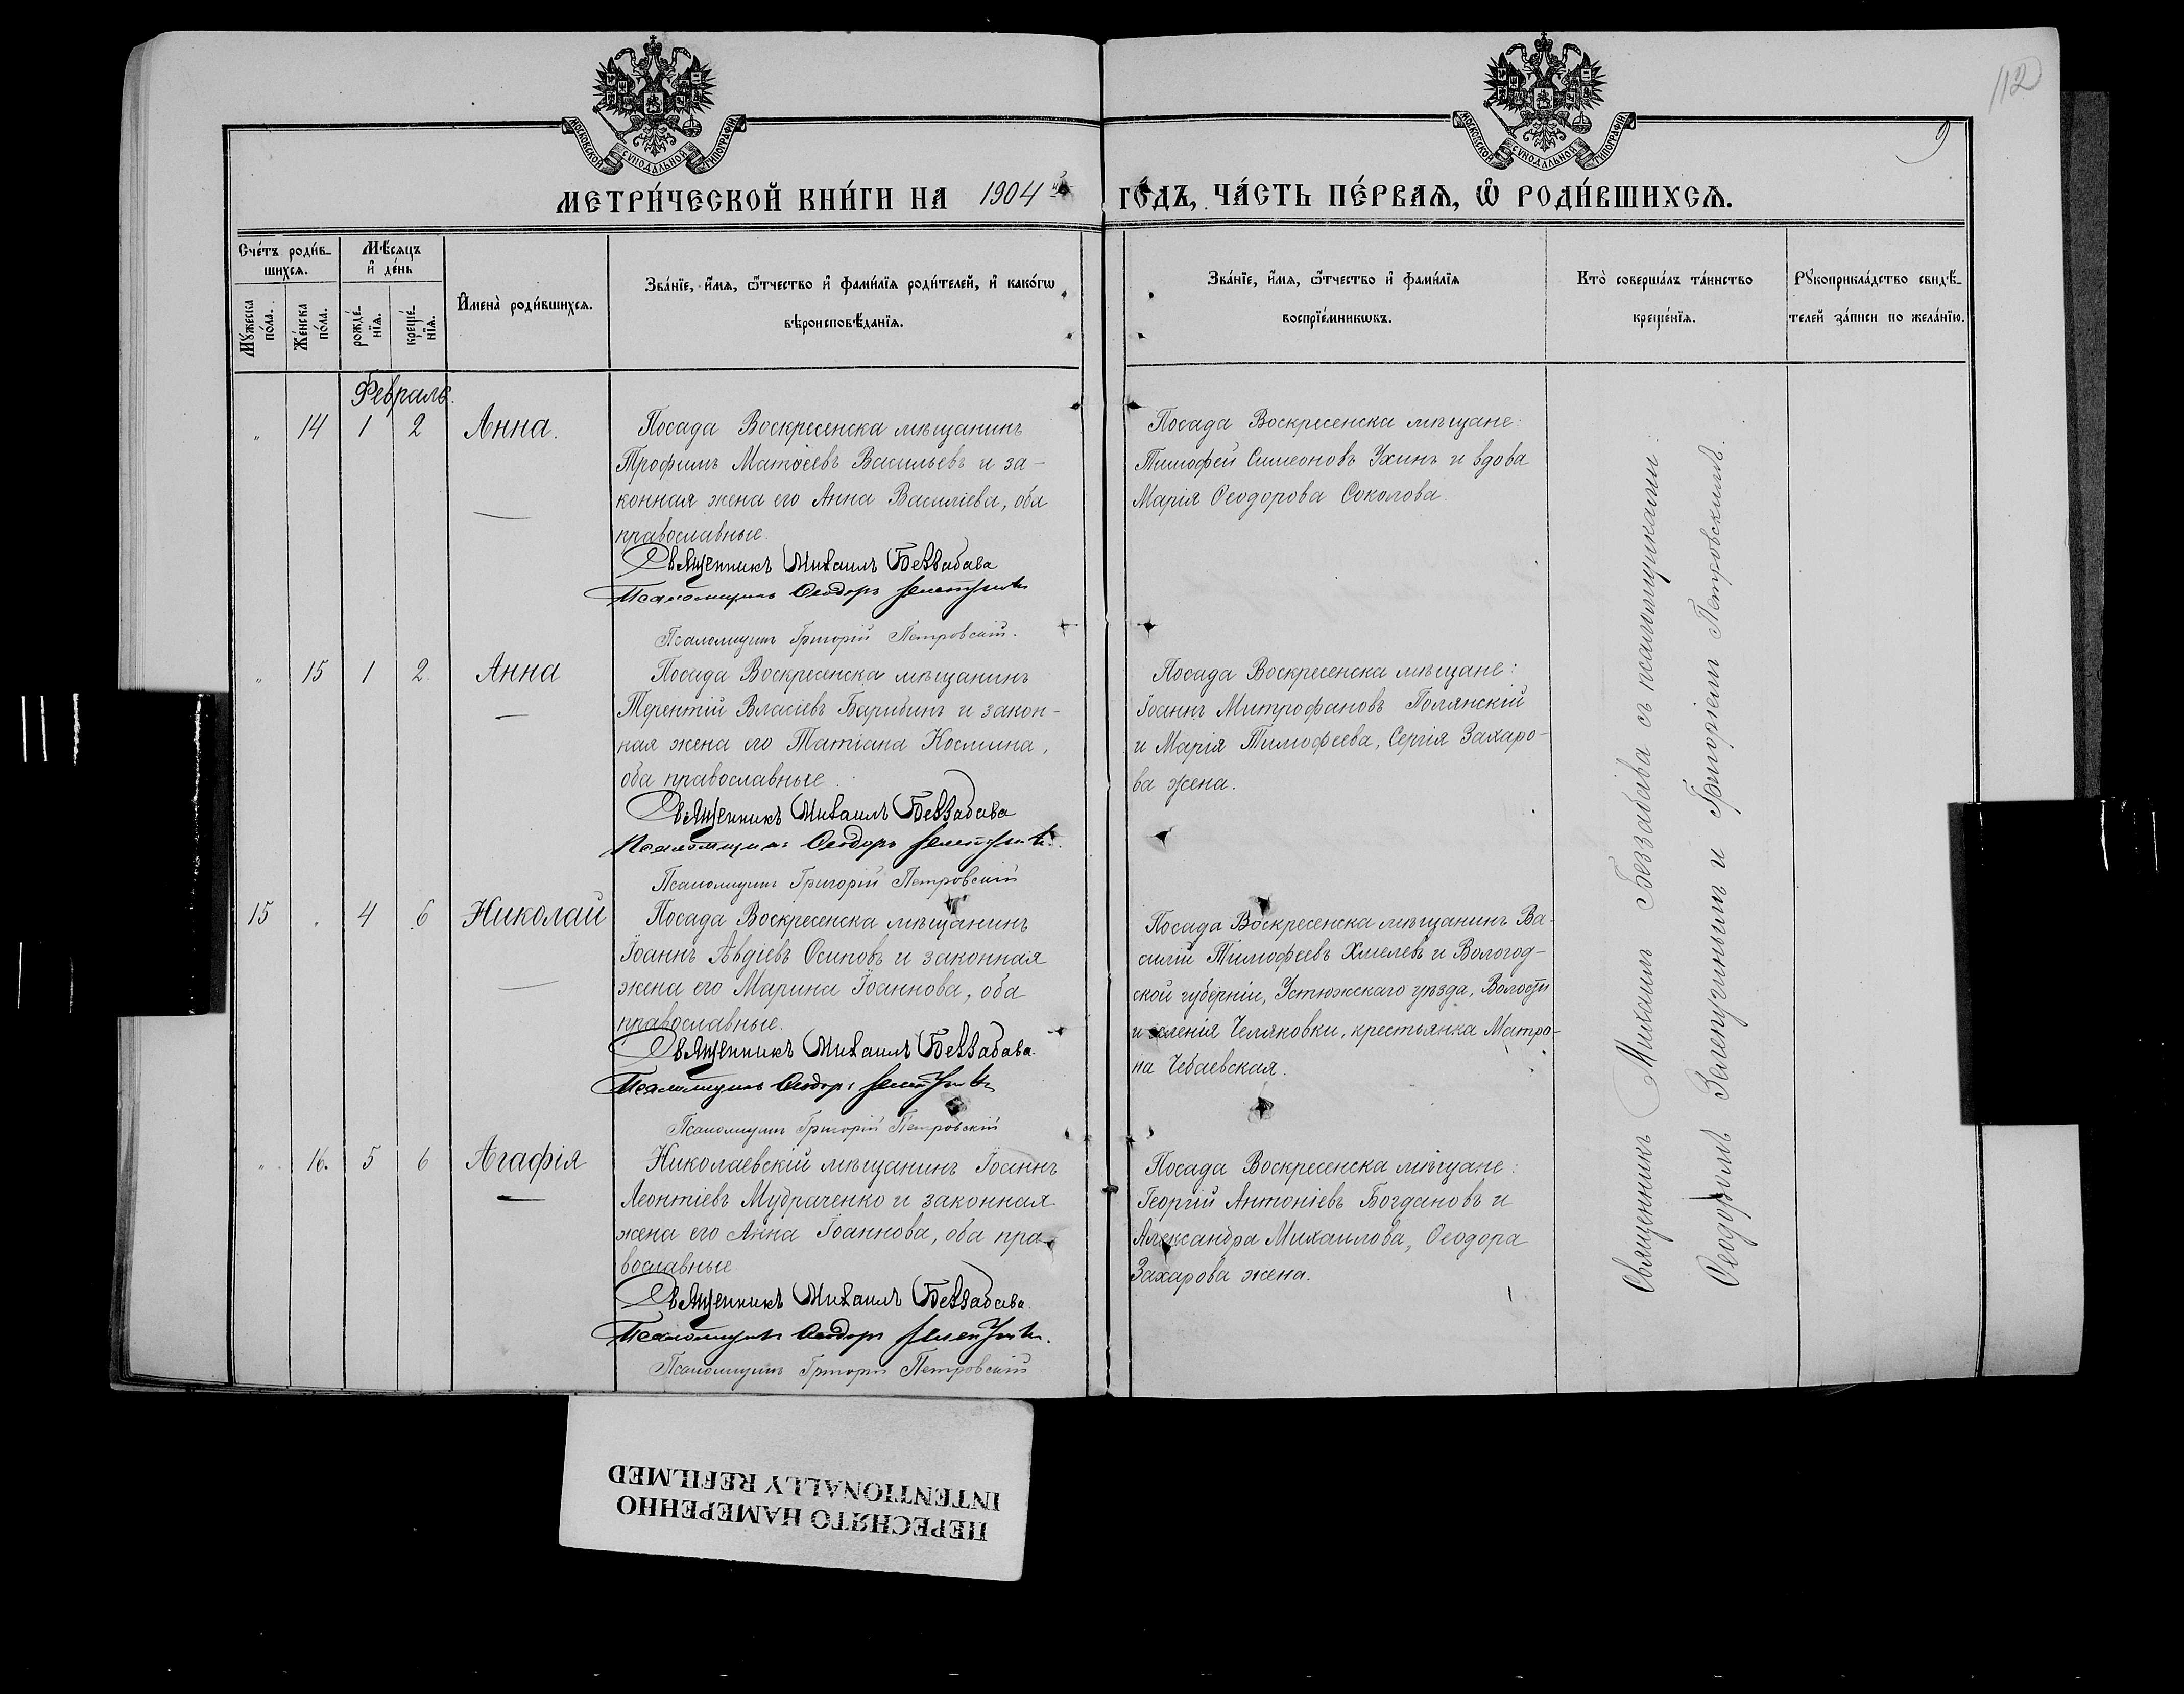 112
9
МОСКОВСКОЙ СѴНОДАЛЬНОЙ ТИПОГРАФІИ
МОСКОВСКОЙ СѴНОДАЛЬНОЙ ТИПОГРАФІИ
МЕТРИ́ЧЕСКОЙ КНИ́ГИ НА 1904 й ГО́ДЪ, ЧА́СТЬ ПЕ́РВАѦ, Ѡ҆ РОДИ́ВШИХСѦ.
Сче́тъ роди́в-
шихсѧ.
Мꙋ́жеска по́ла.
Же́нска по́ла.
Мѣ́сѧцъ
и҆ де́нь
рожде́-
нїѧ.
креще́-
нїѧ.
И҆мена̀ роди́вшихсѧ.
Зва́нїе, и҆́мѧ, ѻ҆́тчество и҆ фами́лїѧ роди́телей, и҆ како́гѡ
вѣроисповѣ́данїѧ.
Зва́нїе, и҆́мѧ, ѻ҆́тчество и҆ фами́лїѧ
воспрїе́мникѡвъ.
Кто̀ соверша́лъ та́инство
креще́нїѧ.
Рꙋкоприкла́дство свидѣ́-
телей за́писи по жела́нїю.
Февраль.
" 14 1 2 Анна.
Посада Воскресенска мѣщанинъ
Трофимъ Матѳеевъ Васильевъ и за-
конная жена его Анна Василіева, оба
православные.
Священникъ Михаилъ Беззабава
Псаломщикъ Ѳеодоръ
Псаломщикъ Григорій Петровскій.
Посада Воскресенска мѣщане:
Тимофей Симеоновъ Ухинъ и вдова
Марія Ѳеодорова Соколова.
" 15 1 2 Анна
Посада Воскресенска мѣщанинъ
Терентій Власіевъ Барибинъ и закон-
ная жена его Татіана Космина,
оба православные.
Священникъ Михаилъ Беззабава
Псаломщикъ Ѳеодоръ
Псаломщикъ Григорій Петровскій
Посада Воскресенска мѣщане:
Іоаннъ Митрофановъ Полянскій
и Марія Тимофеева, Сергія Захаро-
ва жена.
15 " 4 6 Николай
Посада Воскресенска мѣщанинъ
Іоаннъ Авдіевъ Осиповъ и законная
жена его Марина Іоаннова, оба
православные.
Священникъ Михаилъ Беззабава.
Псаломщикъ Ѳеодоръ
Псаломщикъ Григорій Петровскій
Посада Воскресенска мѣщанинъ Ва-
силій Тимофеевъ Хмелевъ и Вологод-
ской губерніи, Устюжскаго уѣзда, Волости
и селенія Челяковки, крестьянка Матро-
на Чебаевская.
" 16. 5 6 Агафія
Николаевскій мѣщанинъ Іоаннъ
Леонтіевъ Мудраченко и законная
жена его Анна Іоаннова, оба пра-
вославные
Священникъ Михаилъ Беззабава
Псаломщикъ Ѳеодоръ
Псаломщикъ Григорій Петровскій
Посада Воскресенска мѣщане:
Георгій Антоніевъ Богдановъ и
Александра Михаилова, Ѳеодора
Захарова жена.
Священникъ Михаилъ Беззабава съ псаломщиками:
Ѳеодоромъ Зелепугинымъ и Григоріемъ Петровскимъ.
ПЕРЕСНЯТО НАМЕРЕННО
INTENTIONALLY REFILMED